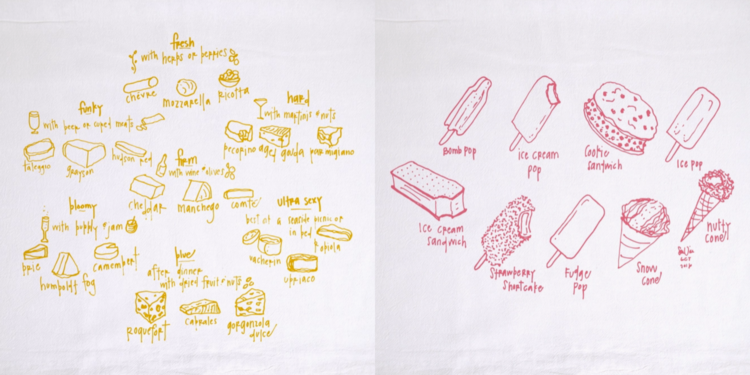 fresh
with herbs or berries
chèvre
mozzarella
ricotta
funky
with beer or cured meats
taleggio
grayson
hudson red
hard
with martinis & nuts
pecorino
aged gouda
parmigiano
firm
with wine & olives
cheddar
manchego
comté
bloomy
with bubbly & jam
brie
humboldt fog
camembert
ultra sexy
best at a seaside picnic or
in bed
vacherin
robiola
upriaco
blue
after dinner
with dried fruit & nuts
roquefort
cabrales
gorgonzola
dulce
Bomb pop
ice cream
pop
Cookie
Sandwich
Ice pop
Ice cream
Sandwich
Strawberry
Shortcake
Fudge
Pop
Snow
Cone
Nutty
Cone